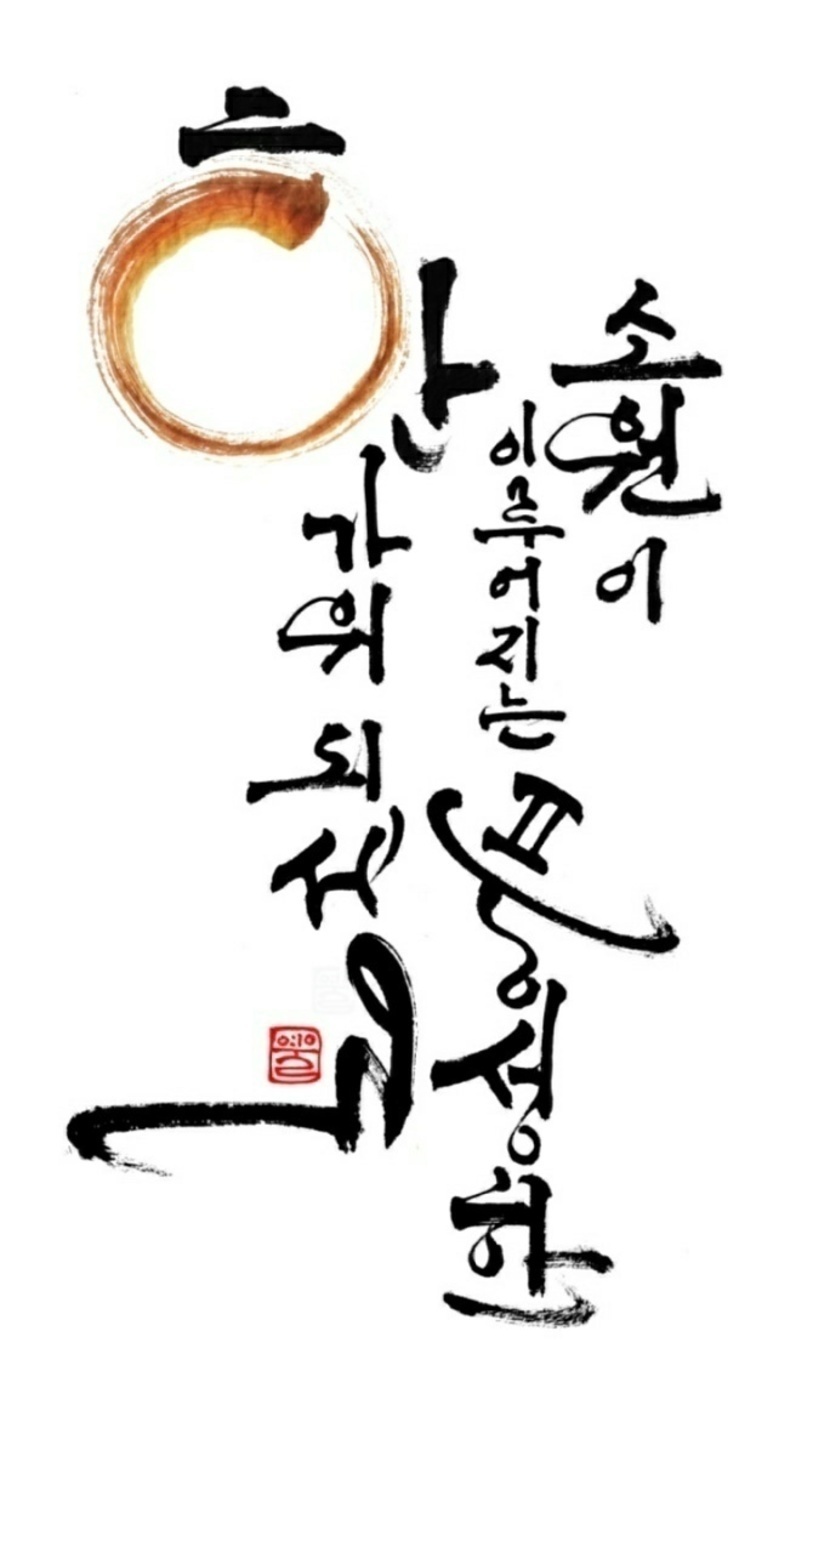 소원이
이루어지는
풍성한
한가위 되세요